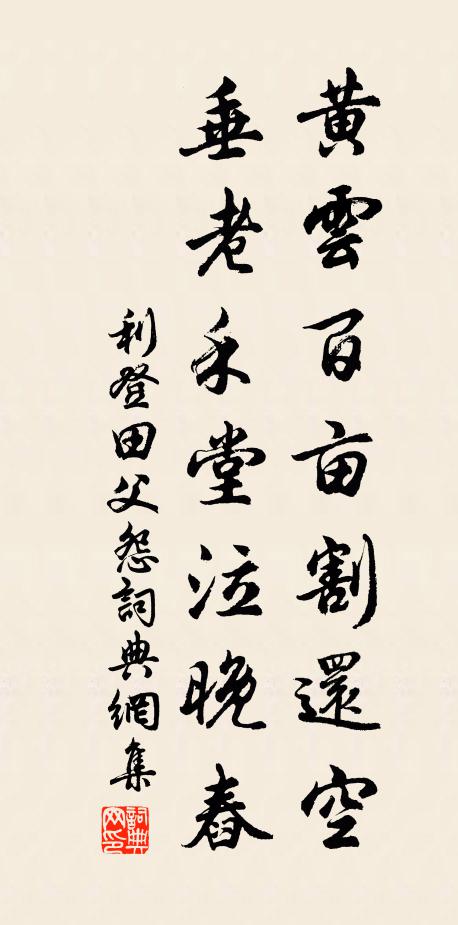 黃雲百亩割還空
垂老禾堂泣晚舂
利登田父怨詞典網集
詞典網印